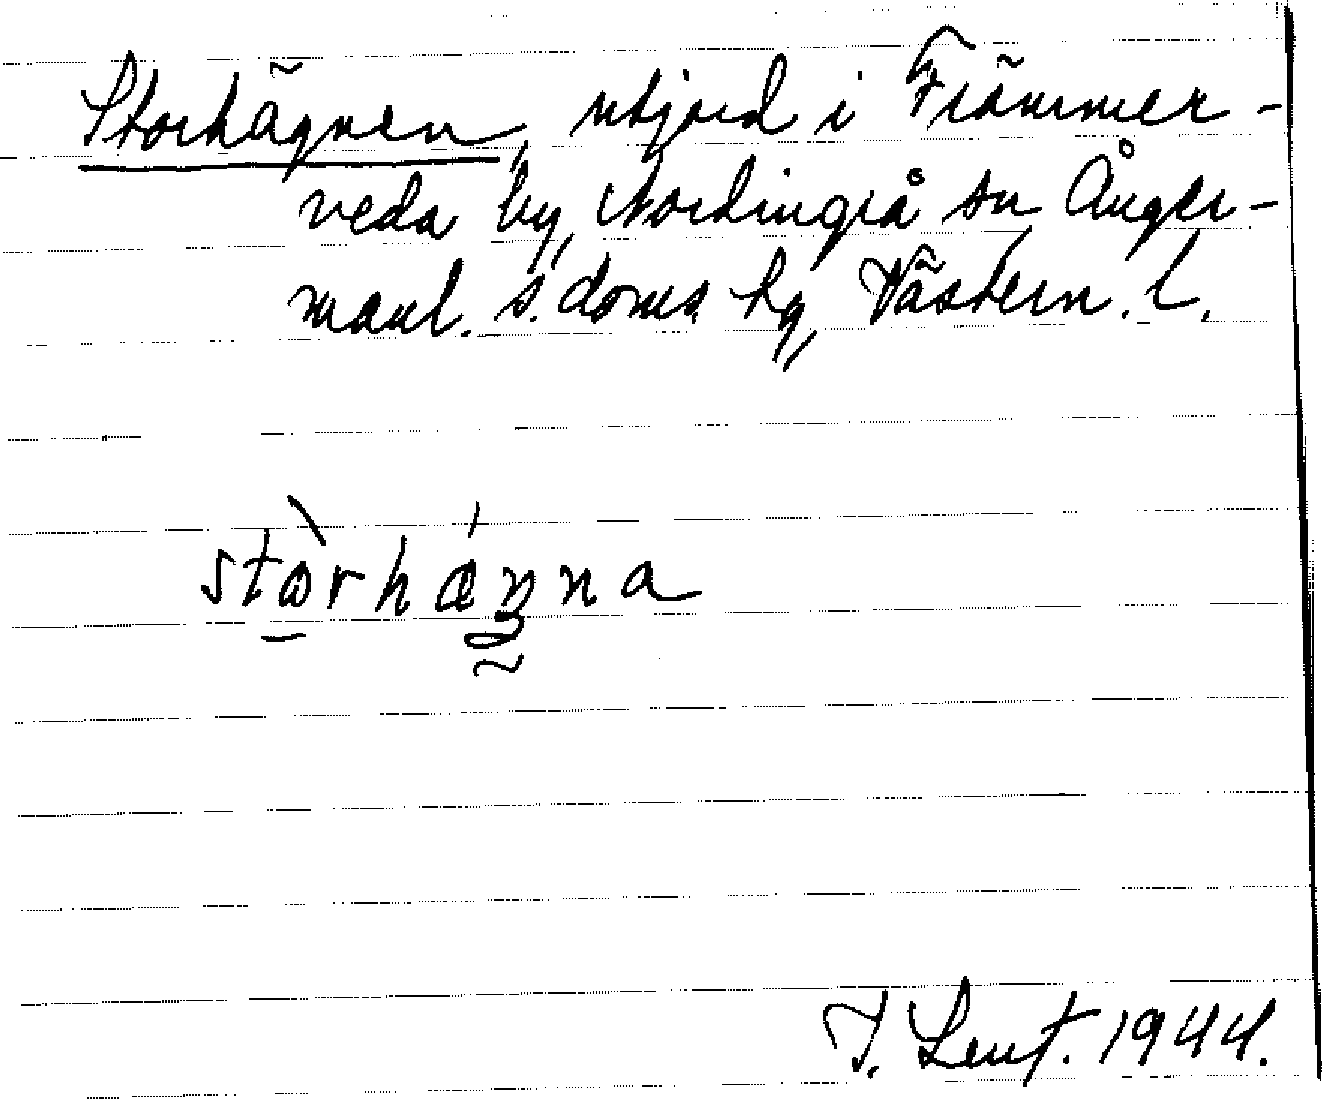 Storhägnen, utjord i Främmer-
veda by, Nordingrå sn Ånger-
manl. s. doms. hg, Västern. l.
J. Lent. 1944.